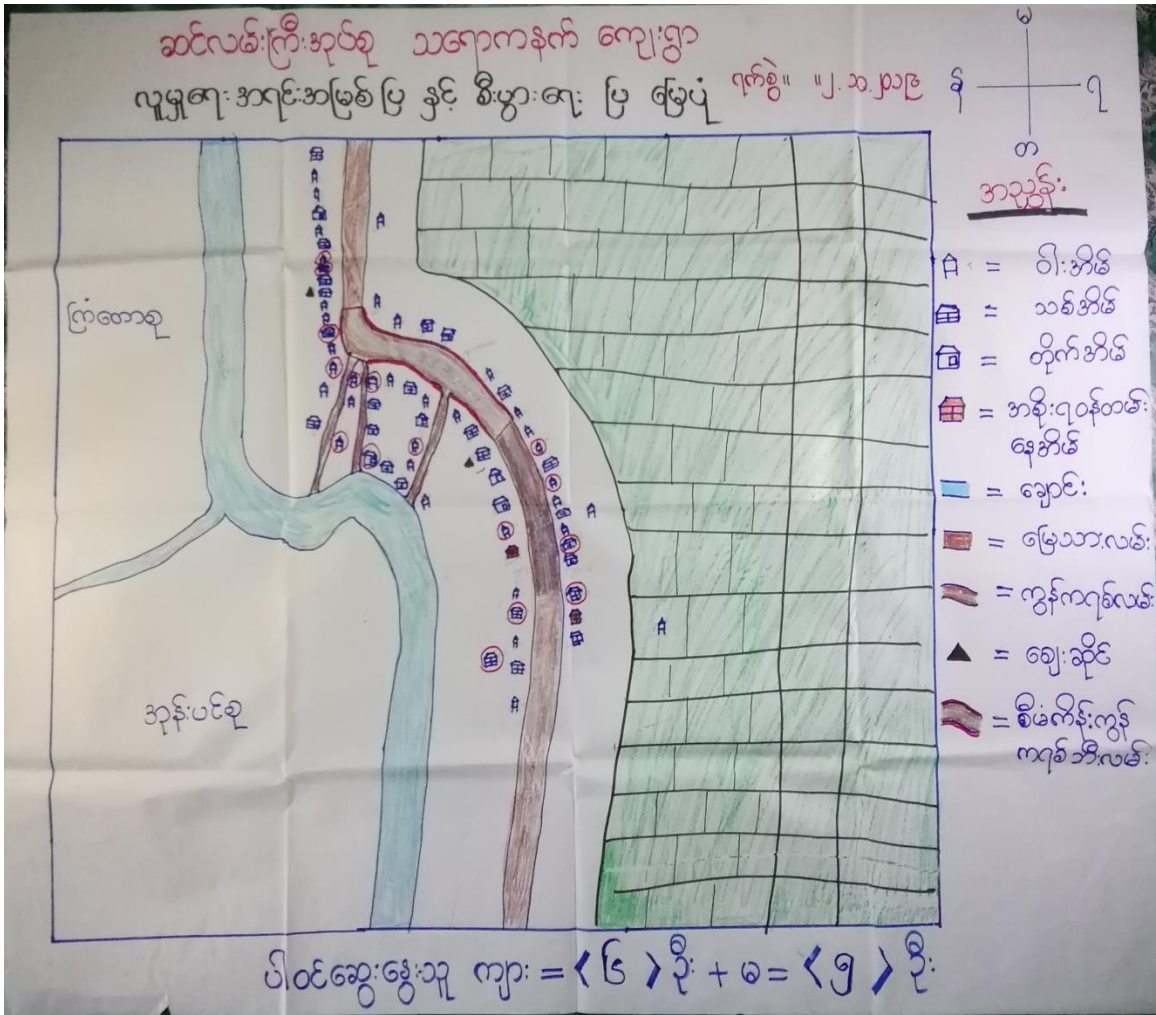 ဆင်လမ်းကြီးအုပ်စု သရောကနက် ကျေးရွာ
လူမှုရေးအရင်းအမြစ်ပြ နှင့် စီးပွားရေး ပြ မြေပုံ
ရက်စွဲ။ ။၂.၁၁.၂၀၁၉
မ
န
ရ
တ
အညွှန်း
= ဝါးအိမ်
= သစ်အိမ်
= တိုက်အိမ်
= အစိုးရဝန်ထမ်း
နေအိမ်
= ချောင်း
= မြေသားလမ်း
= ကွန်ကရစ်လမ်း
= ဈေးဆိုင်
= စီမံကိန်းကွန်
ကရစ်
ကြံတောစု
အုန်းပင်စု
ပါဝင်ဆွေးနွေးသူ ကျား = < ၆ > ဦး + မ = < ၅ > ဦး